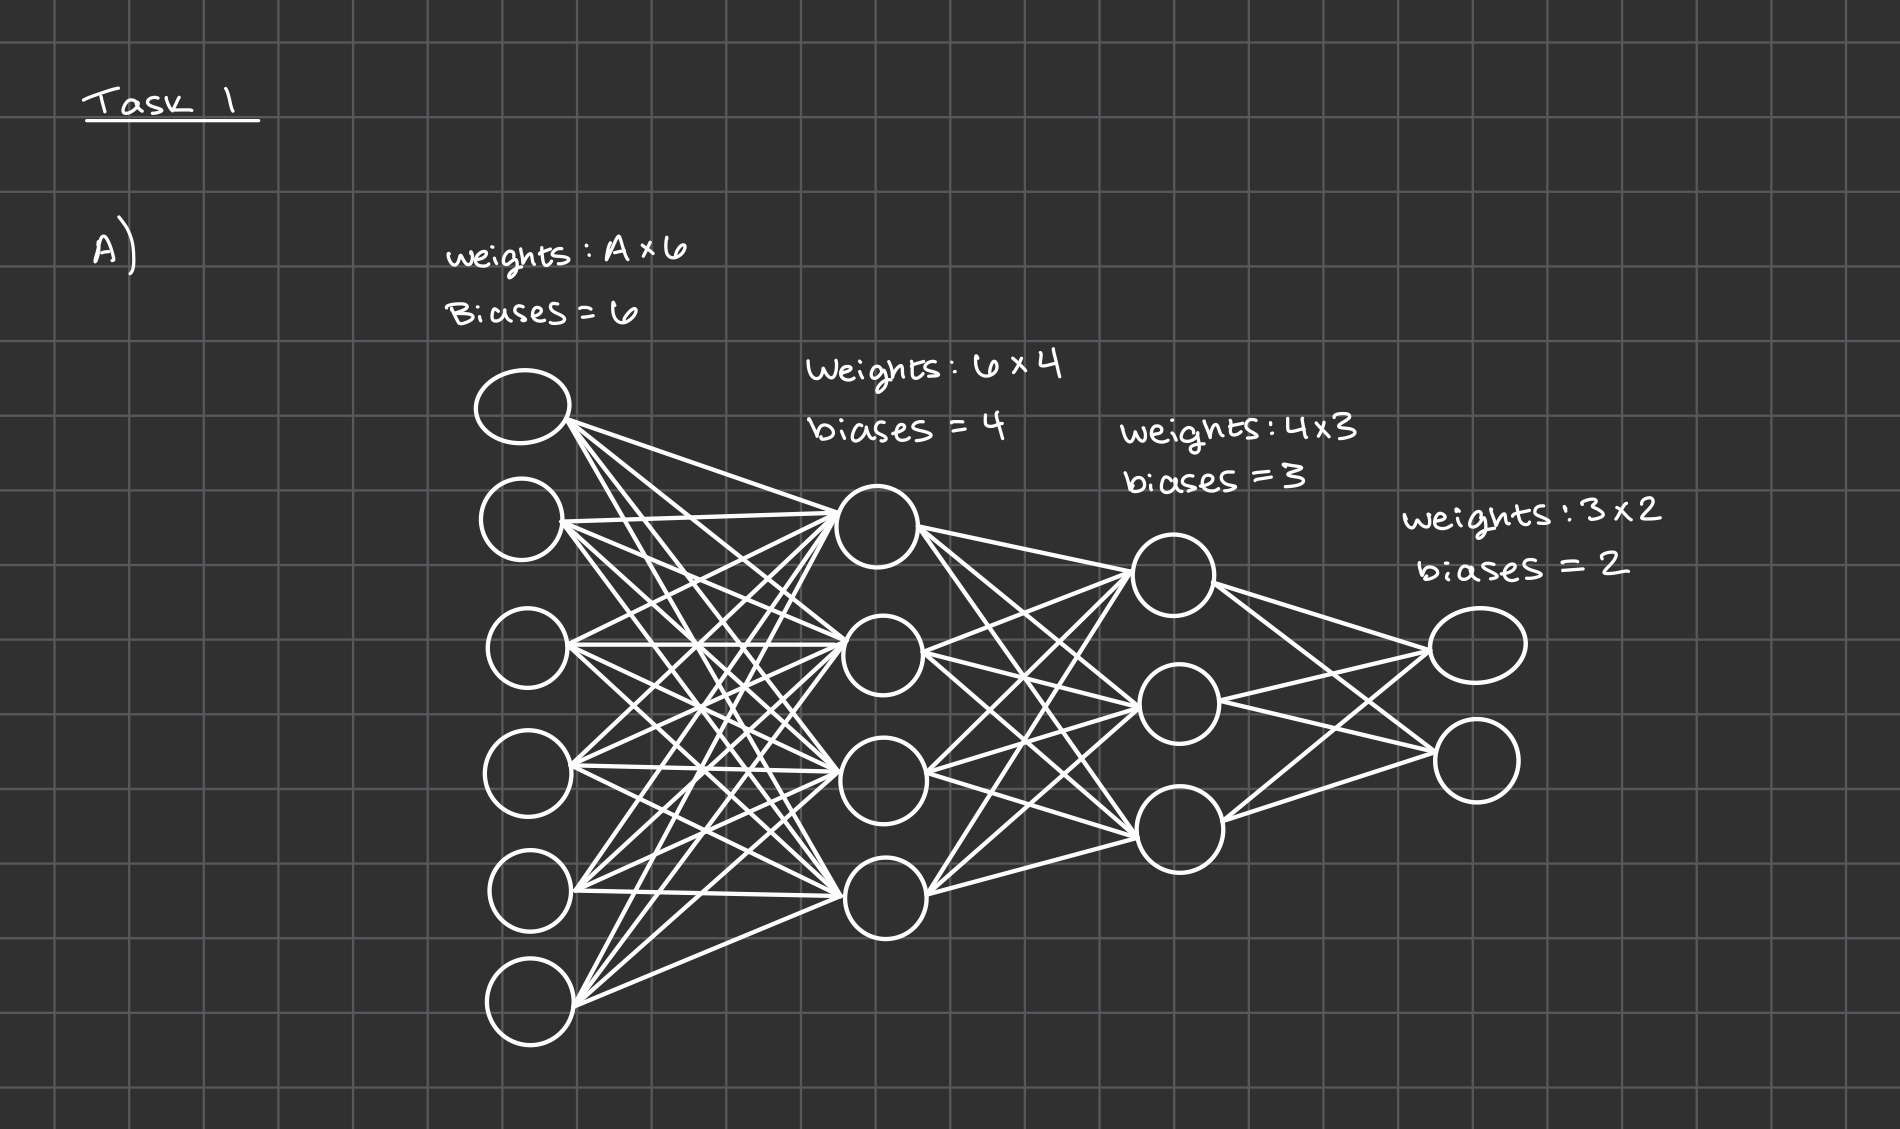 Task 1
A)
weights: A x 6
Biases = 6
Weights: 6 x 4
biases = 4
weights: 4x3
biases = 3
weights: 3x2
biases = 2